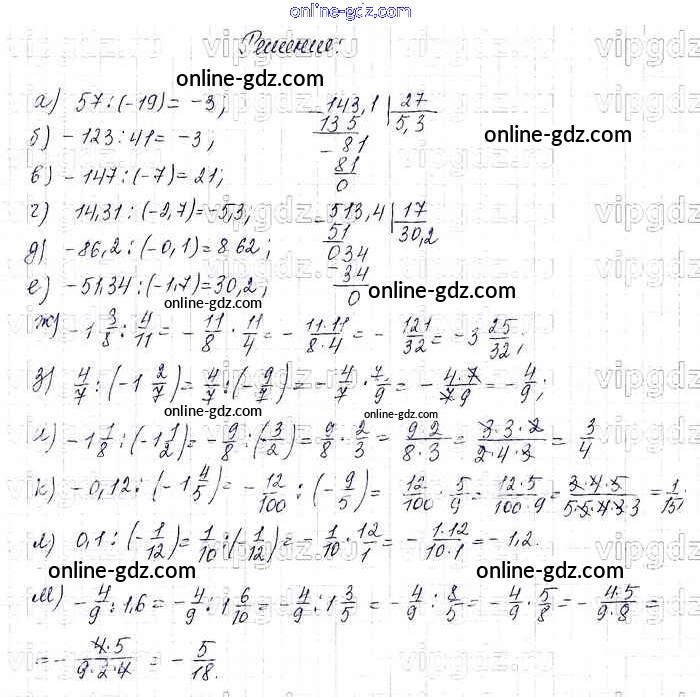 online-gdz.com
Решение:
online-gdz.com
а) 57:(-19)= -3;
б) -123:41= -3;
в) -147:(-7)=21;
г) 14,31:(-2,7)=-5,3;
д) -86,2:(-0,1)=862;
е) -51,34:(-1,7)=30,2;
143,1 | 27
135 5,3
- 81
81
0
online-gdz.com
online-gdz.com
- 513,4 | 17
51 30,2
034
- 34
0
online-gdz.com
online-gdz.com
ж) -1 3/8 : 4/11 = - 11/8 · 11/4 = - 11·11/8·4 = - 121/32 = -3 25/32;
online-gdz.com
online-gdz.com
з) 4/7 : (-1 2/7) = 4/7 : (- 9/7) = - 4/7 · 7/9 = - 4·7/7·9 = - 4/9;
online-gdz.com
и) -1 1/8 : (-1 1/2) = - 9/8 : (- 3/2) = 9/8 · 2/3 = 9·2/8·3 = 3·3·2/2·4·3 = 3/4
online-gdz.com
online-gdz.com
к) -0,12 : (-1 4/5) = - 12/100 : (- 9/5) = 12/100 · 5/9 = 12·5/100·9 = 3·4·5/5·5·4·3·3 = 1/15;
л) 0,1 : (- 1/12) = 1/10 : (- 1/12) = - 1/10 · 12/1 = - 1·12/10·1 = -1,2.
online-gdz.com
online-gdz.com
м) - 4/9 : 1,6 = - 4/9 : 1 6/10 = - 4/9 : 1 3/5 = - 4/9 : 8/5 = - 4/9 · 5/8 = - 4·5/9·8 =
= - 4·5/9·2·4 = - 5/18.
online-gdz.com